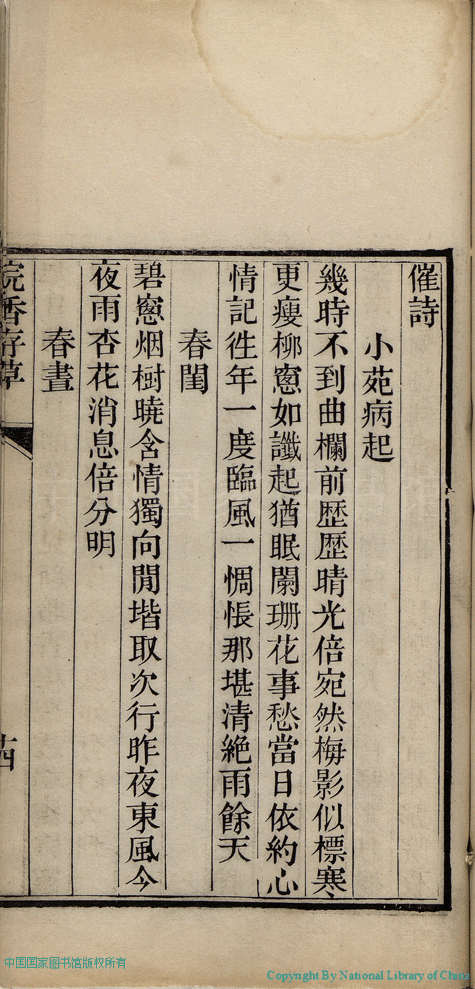 催詩
小苑病起
幾時不到曲欄前歴歴晴光倍宛然梅影似標寒
更瘦柳窻如讖起猶眠闌珊花事愁當日依約心
情記徃年一度臨風一惆悵那堪清絶雨餘天
春閨
碧窻烟樹曉含情獨向閒堦取次行昨夜東風今
夜雨杏花消息倍分明
春晝
香存草
十四
中国国家图书馆版权所有
Copyright By National Library of China